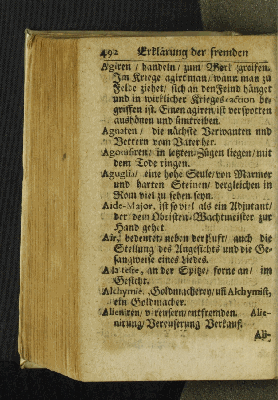 492 Erklärung der fremden
Agiren / handeln / zum Werk greifen.
Im Kriege agiret man / wann man zu
Felde ziehet / sich an den Feind hänget
und in wirklicher Krieges-action be-
griffen ist. Einen agiren, ist verspotten
aushönen und umtreiben.
Agnaten / die nächste Verwanten und
Vettern vom Vater her.
Agonisiren / in letzten Zügen liegen / mit
dem Tode ringen.
Aguglia / eine hohe Seule / von Marmor
und harten Steinen / dergleichen in
Rom viel zu sehen seyn.
Aide-Major, ist so viel als ein Adjutant /
der dem Obristen-Wachtmeister zur
Hand gehet.
Air, bedeutet neben der Luft / auch die
Stellung des Angesichts und die Ge-
sangweise eines Liedes.
A la teste, an der Spitze / forne an / im
Gesicht.
Alchymie, Goldmacherey / uñ Alchymist,
ein Goldmacher.
Alieniren / vereusern / entfremden. Alie-
nirung / Vereuserung Verkauf.
Ali-